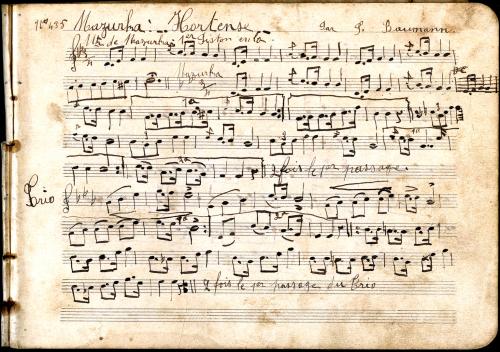 N° 435 Mazurka : Hortense par J. Baumann
de Mazurka 1er Piston en la
Mazurka
1a
2 fois le 1er passage.
Trio
1a 2a
2 fois le 1er passage du Trio